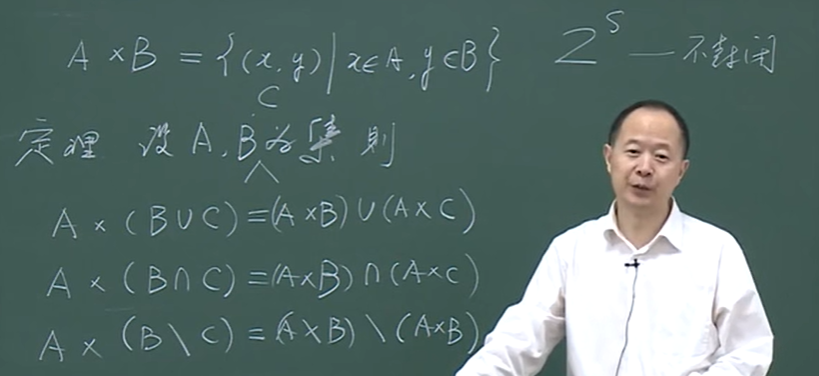 A × B = {(x, y) | x∈A, y∈B} 2^S — 不封闭
C
定理 设 A, B 为集 则
A × (B∪C) = (A×B)∪(A×C)
A × (B∩C) = (A×B)∩(A×C)
A × (B \ C) = (A×B) \ (A×B)